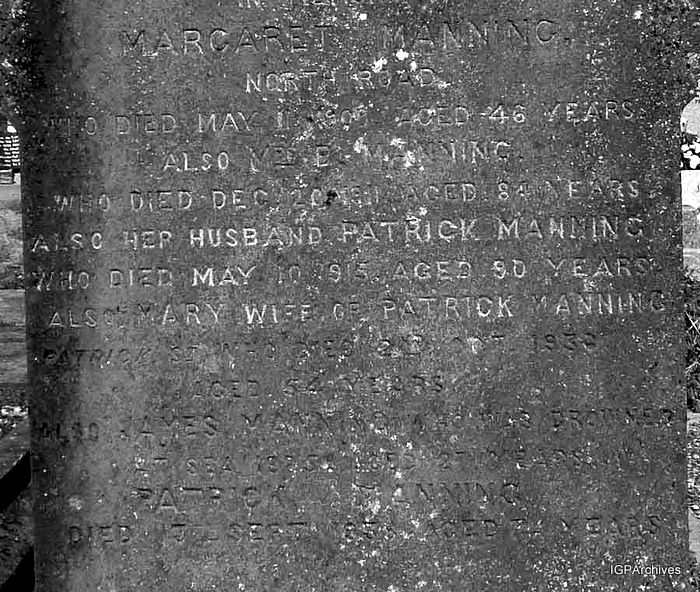 MARGARET MANNING.
NORTH ROAD.
WHO DIED MAY 11, 1909, AGED 46 YEARS
ALSO MRS B. MANNING
WHO DIED DEC. 20 1911 AGED 84 YEARS.
ALSO HER HUSBAND PATRICK MANNING
WHO DIED MAY 10 1915. AGED 90 YEARS.
ALSO MARY WIFE OF PATRICK MANNING
PATRICK ST. WHO DIED OCT 1939
AGED 54 YEARS
ALSO JAMES MANNING WAS DROWNED
AT SEA AGED YEARS
PATRICK MANNING
DIED SEPT AGED YEARS
IGPArchives